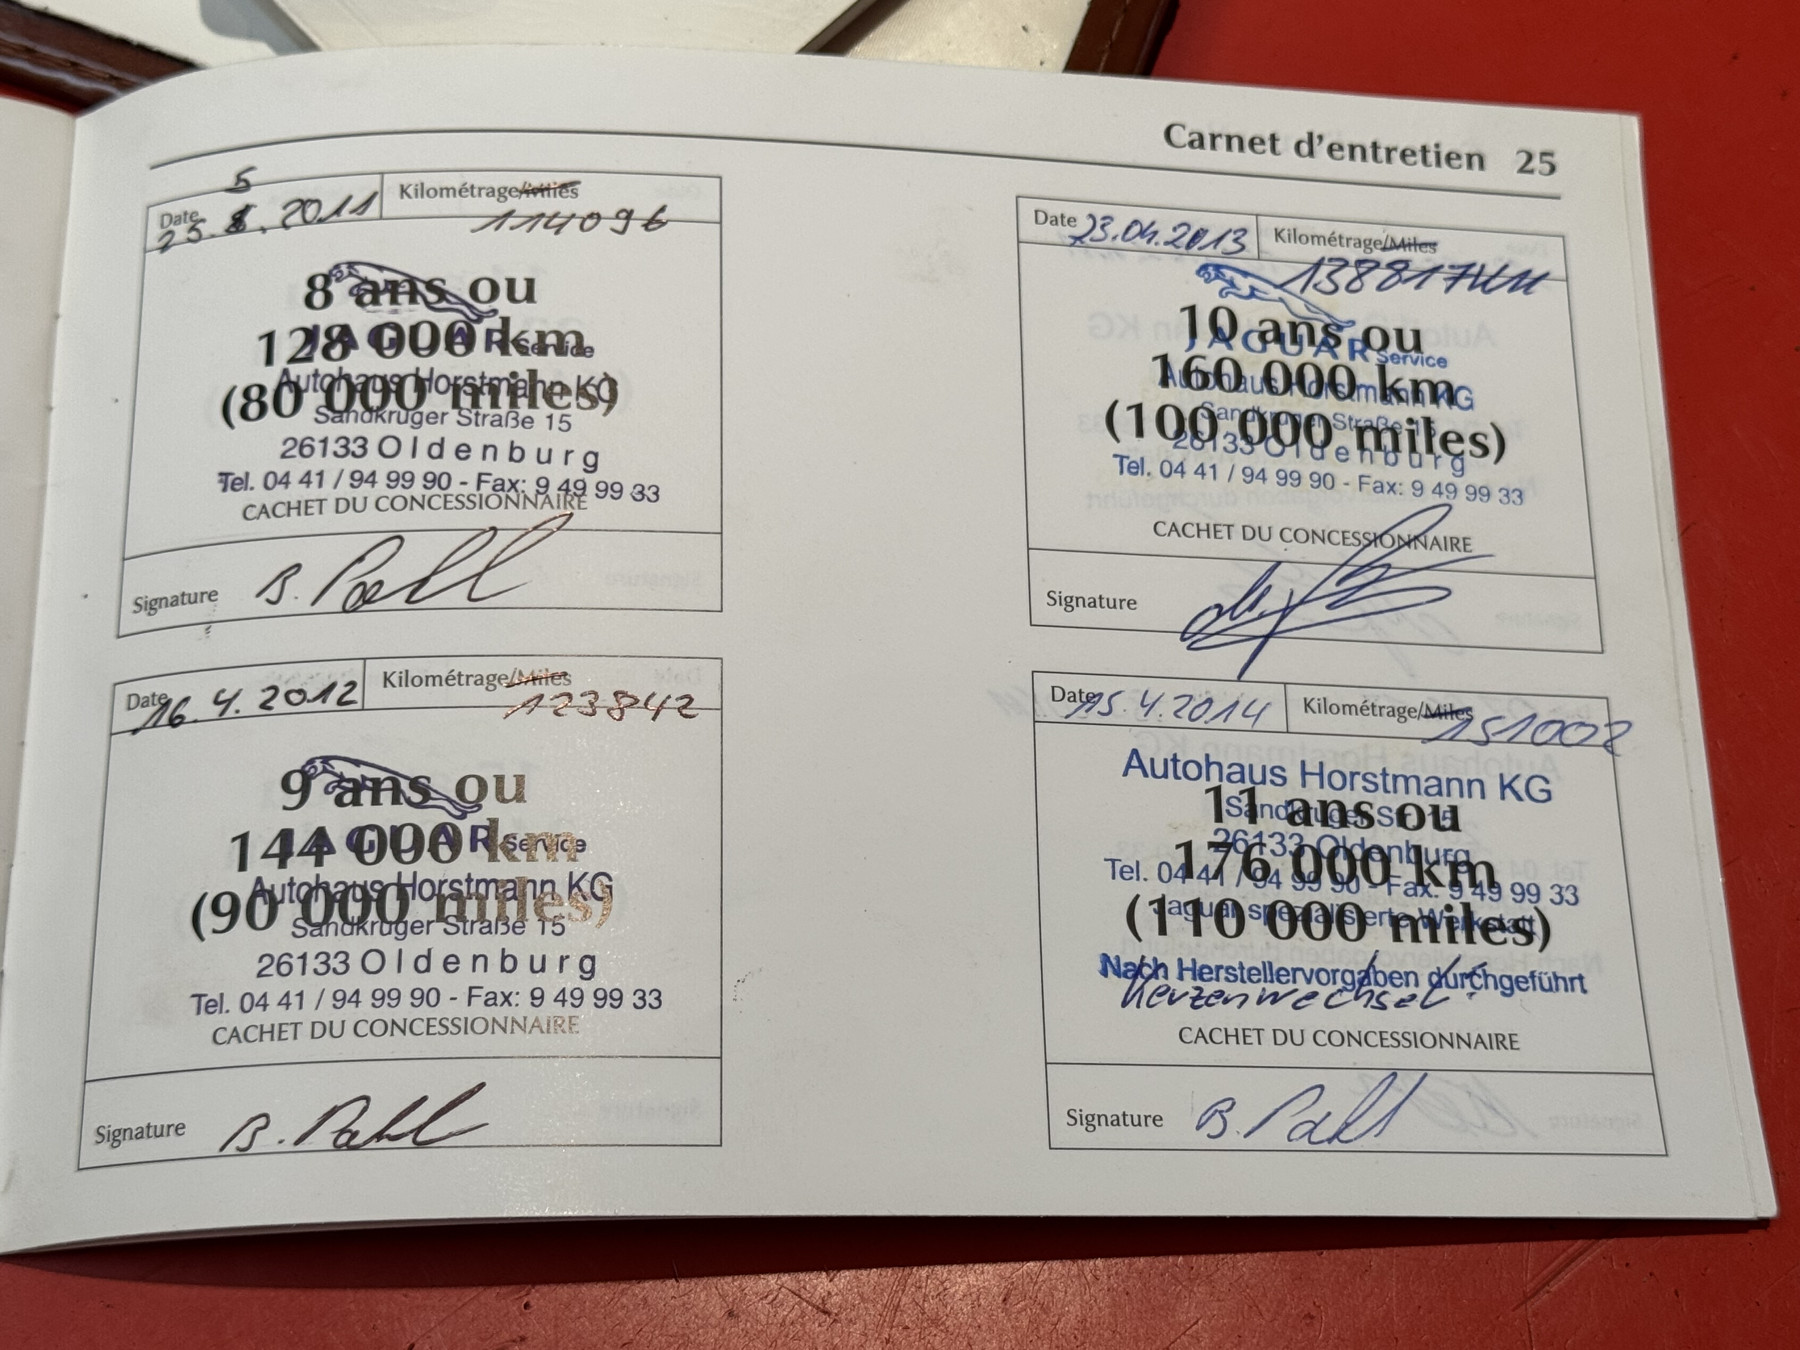 Carnet d'entretien 25
Date 25. 5. 2011 Kilométrage/Miles 114096
8 ans ou
128 000 km
(80 000 miles)
JAGUAR Service
Autohaus Horstmann KG
Sandkruger Straße 15
26133 Oldenburg
Tel. 04 41 / 94 99 90 - Fax: 9 49 99 33
CACHET DU CONCESSIONNAIRE
Signature B. Pahl
Date 16. 4. 2012 Kilométrage/Miles 123842
9 ans ou
144 000 km
(90 000 miles)
JAGUAR Service
Autohaus Horstmann KG
Sandkruger Straße 15
26133 Oldenburg
Tel. 04 41 / 94 99 90 - Fax: 9 49 99 33
CACHET DU CONCESSIONNAIRE
Signature B. Pahl
Date 23.04.2013 Kilométrage/Miles
138817KM
10 ans ou
160 000 km
(100 000 miles)
JAGUAR Service
Autohaus Horstmann KG
Sandkruger Straße 15
26133 Oldenburg
Tel. 04 41 / 94 99 90 - Fax: 9 49 99 33
CACHET DU CONCESSIONNAIRE
Signature
Date 15. 4. 2014 Kilométrage/Miles 151002
11 ans ou
176 000 km
(110 000 miles)
Autohaus Horstmann KG
Sandkruger Str. 15
26133 Oldenburg
Tel. 04 41 / 94 99 90 - Fax. 9 49 99 33
Jaguar spezialisierte Werkstatt
Nach Herstellervorgaben durchgeführt
Kerzenwechsel.
CACHET DU CONCESSIONNAIRE
Signature B. Pahl